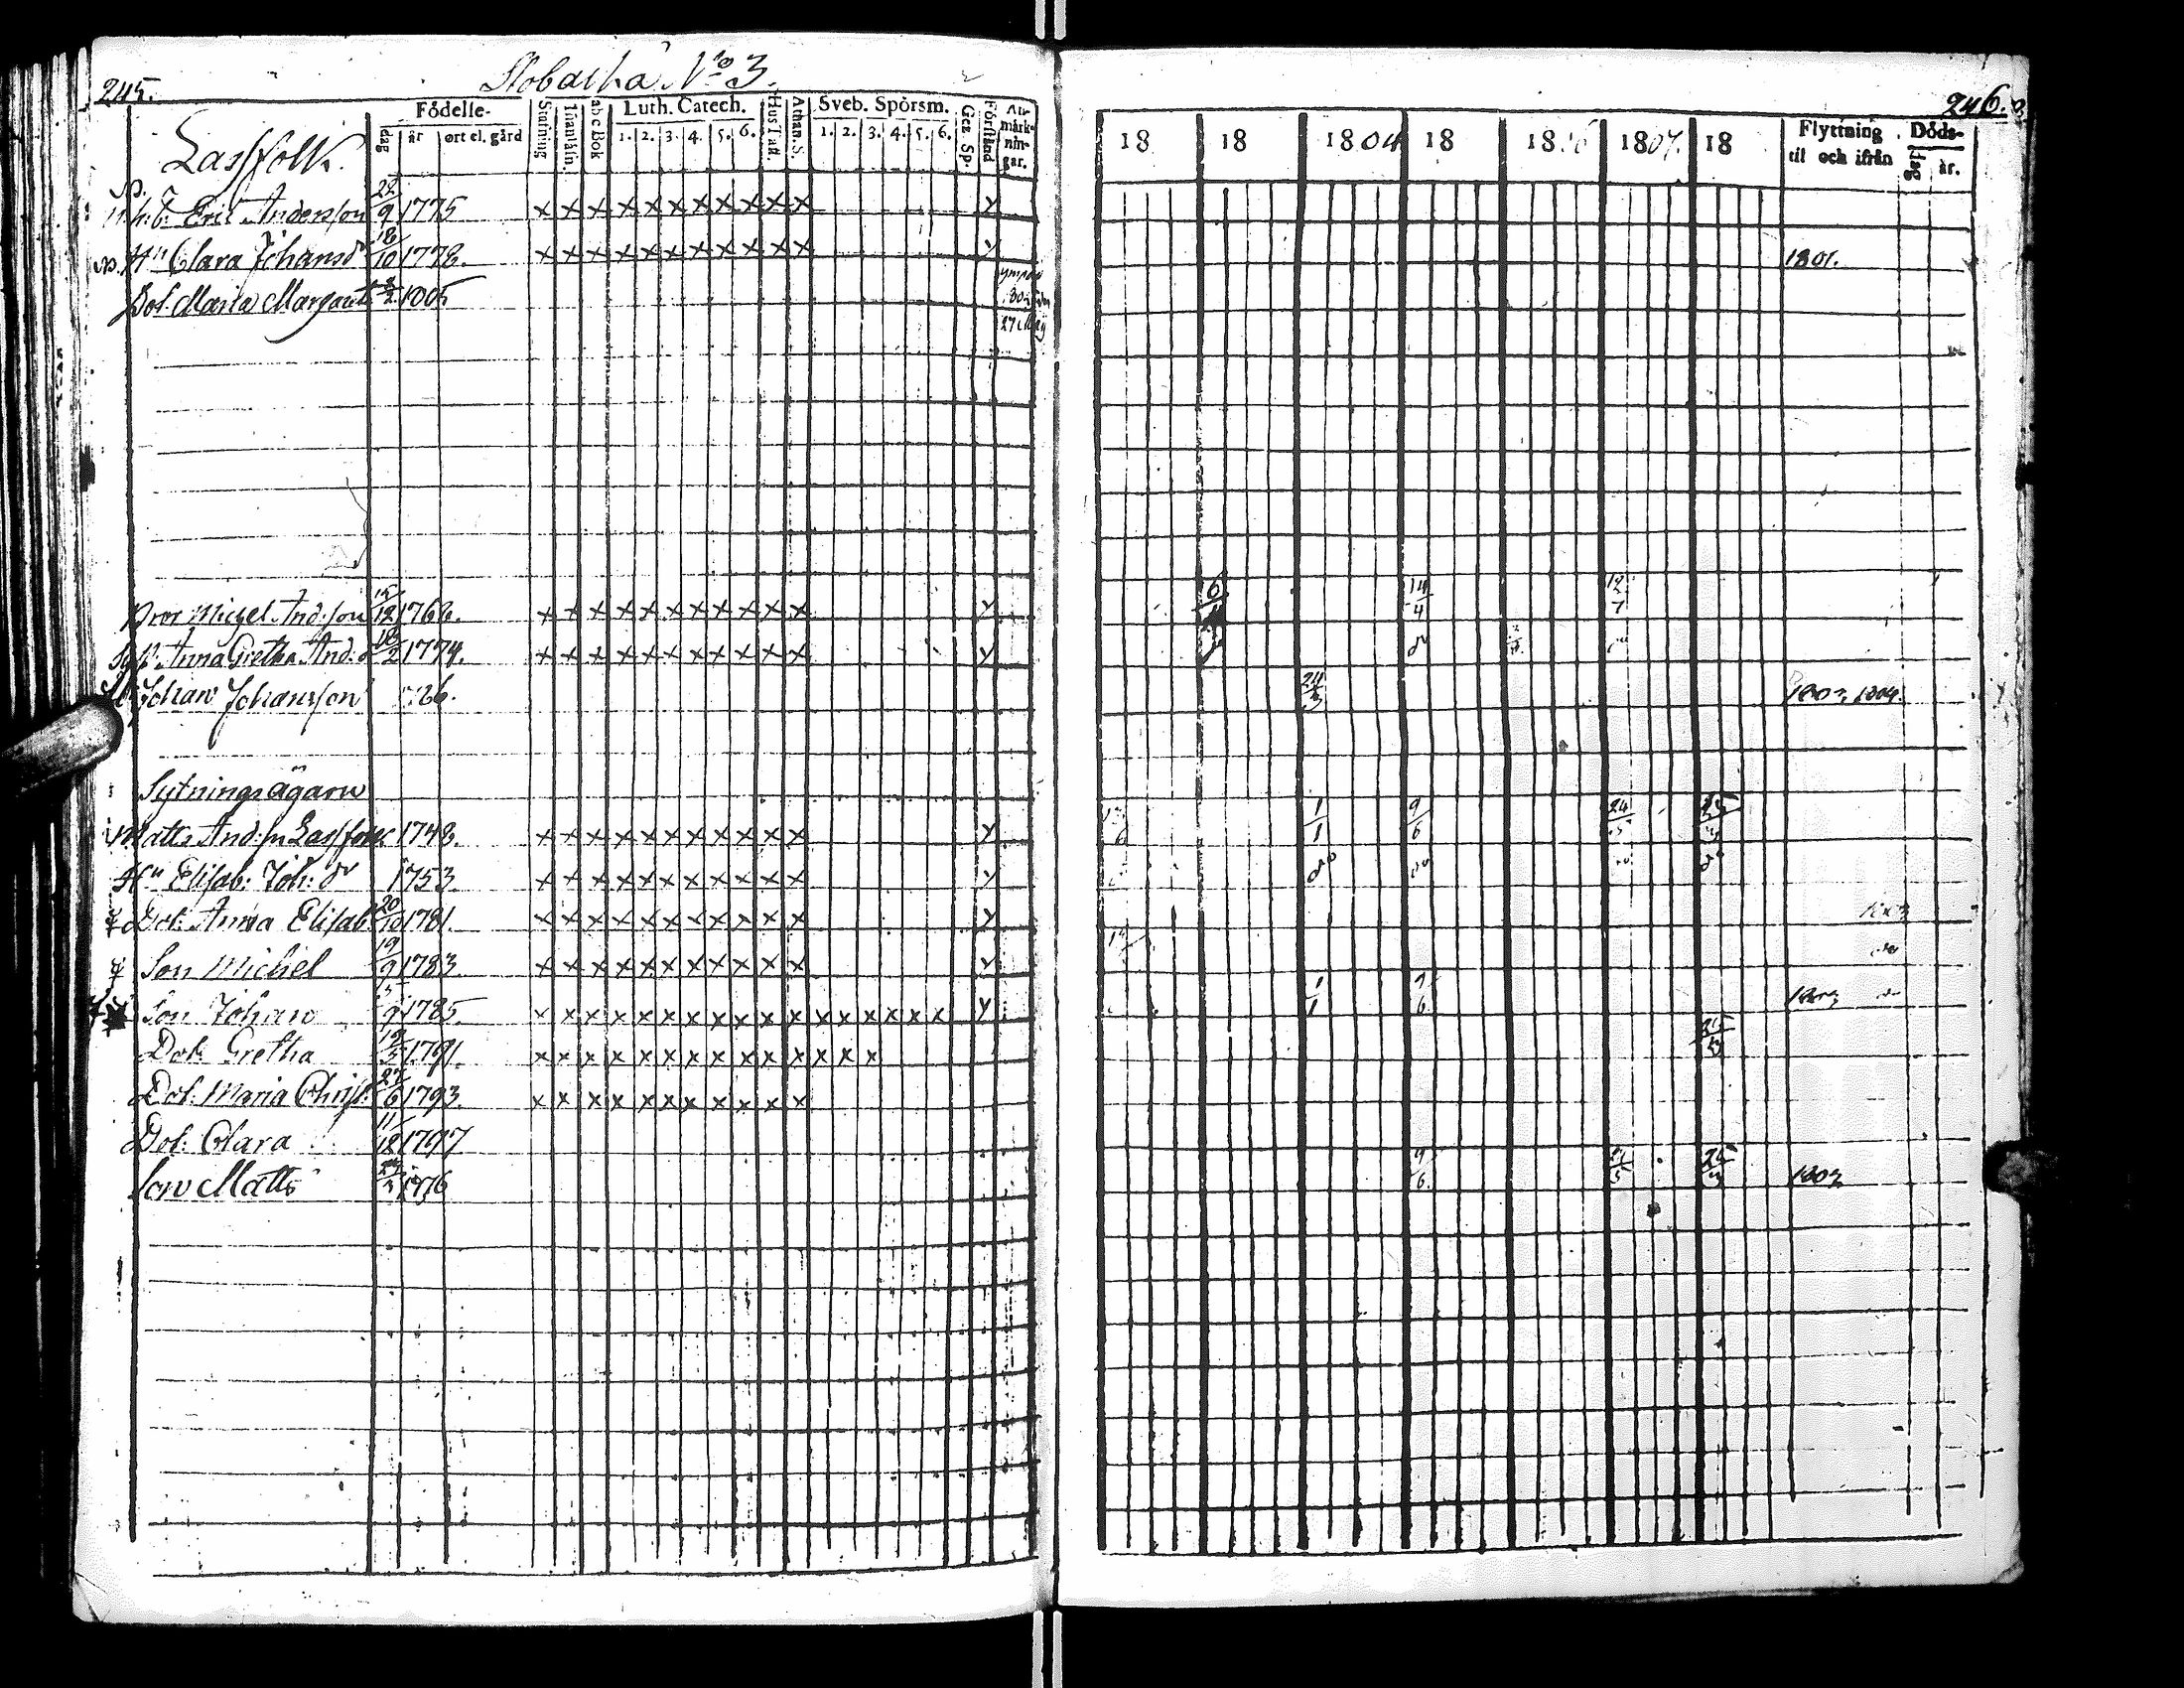 245.
Slobacka No 3.
Födelse-
dag
år
ort el. gård
Stafning
Innanläsn.
abc Bok
Luth. Catech.
1. 2. 3. 4. 5. 6.
Hus Tafl.
Athan. S.
Sveb. Spörsm.
1. 2. 3. 4. 5. 6.
Gez. Sp.
Förstånd
An-
märk-
nin-
gar.
Lassfolk
Eric Andersson 22/9 1775 x x x x x x x x x x x y
Hu Clara Johansdr 18/10 1778. x x x x x x x x x x x y
Dot. Maria Margaret 1805
27 Maij
Bror Michel And:son 15/12 1768. x x x x x x x x x x x y
Anna Gretha And: dr 18/2 1774. x x x x x x x x x x x y
Johan Johansson
Sytningsägarne
Matts And:sn Lassfolk 1748. x x x x x x x x x x x y
Hu Elisab: Joh: dr 1753. x x x x x x x x x x x y
Dot: Anna Elisab: 20/10 1781. x x x x x x x x x x x y
Son Michel 19/9 1783 x x x x x x x x x x x y
Son Johan 1785. x x x x x x x x x x x x x x x x x y
Dot: Gretha 1791. x x x x x x x x x x x x x x
Dot: Maria Christ: 27/6 1793. x x x x x x x x x x x
Dot: Clara 11/12 1797
Son Matts 1776
246.
18 18 1804 18 18 1807. 18
Flyttning
til och ifrån
Döds-
dag
år.
1801.
6 14/4 12/7
do
24/3 1803 1804.
1/1 9/6 24/5 25/3
do do do do
1803
do
1/1 9/6 1803 do
25/3
9/6 24/5 25/3 1803